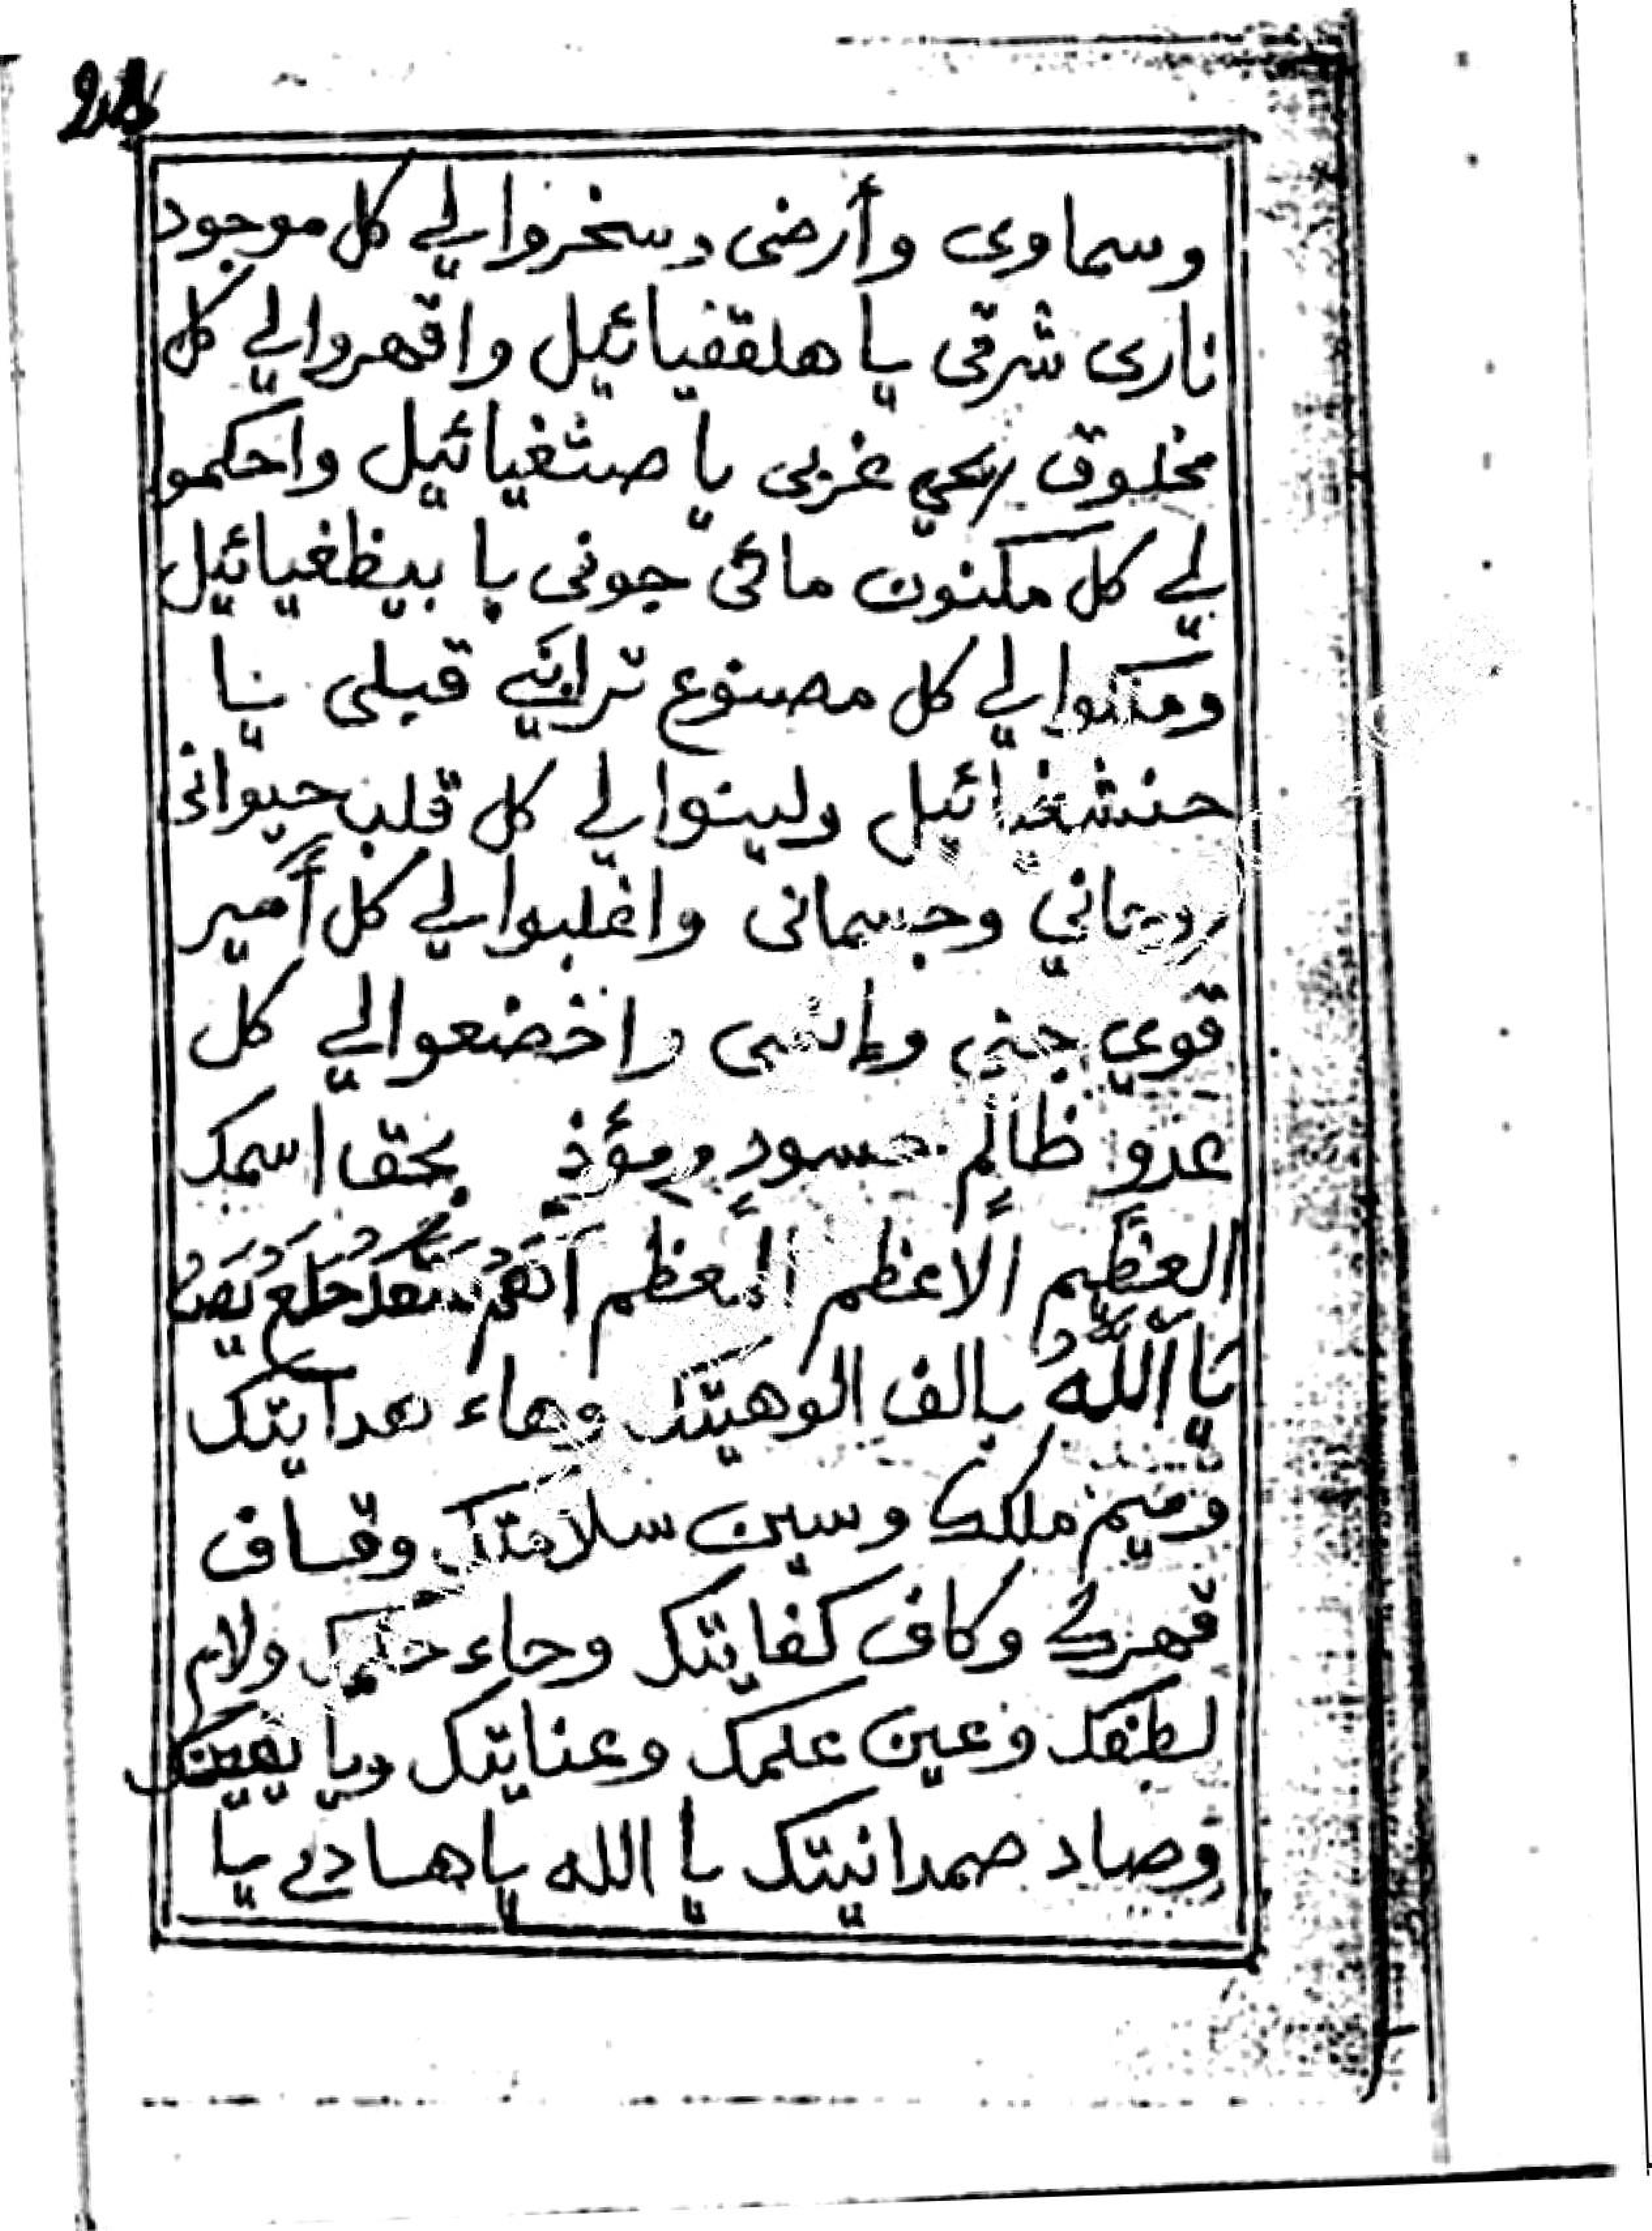 وسماوي وأرضى وسخروا لي كل موجود
نارى شرقى يا هلقفيائيل واقهروا لي كل
مخلوق ريحي غربى يا صثغيائيل واحكموا
لي كل مكنون مائى جونى يا بيظغيائيل
ومكنوا لي كل مصنوع ترابي قبلى يا
حنشغيائيل ولينوا لي كل قلب حيوانى
روحاني وجسمانى واغلبوا لي كل أمير
قوي جني وإنسى واخضعوا لي كل
عدو ظالم حسود ومؤذ بحق اسمك
العظيم الاعظم المعظم
يا الله بالف الوهيتك وهاء هدايتك
وميم ملكك وسين سلامتك وقاف
قهرك وكاف كفايتك وحاء حلمك ولام
لطفك وعين علمك وعنايتك ويا يمينك
وصاد صمدانيتك يا الله يا هادي يا